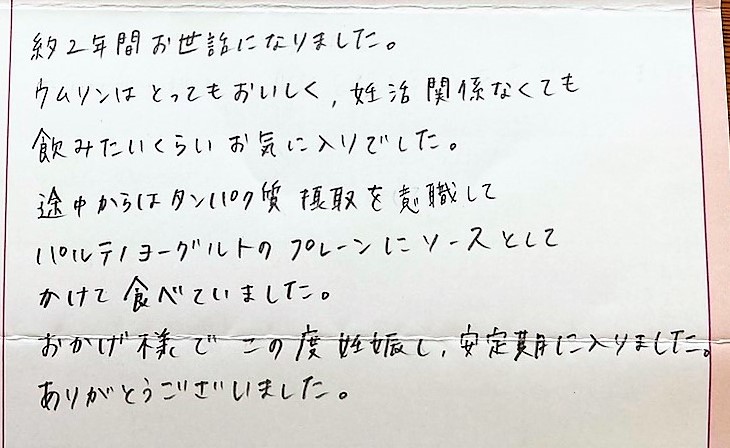 約2年間お世話になりました。
ウムリンはとってもおいしく、妊活関係なくても
飲みたいくらいお気に入りでした。
途中からはタンパク質摂取を意職して
パルテノヨーグルトのプレーンにソースとして
かけて食べていました。
おかげ様でこの度妊娠し、安定期に入りました。
ありがとうございました。